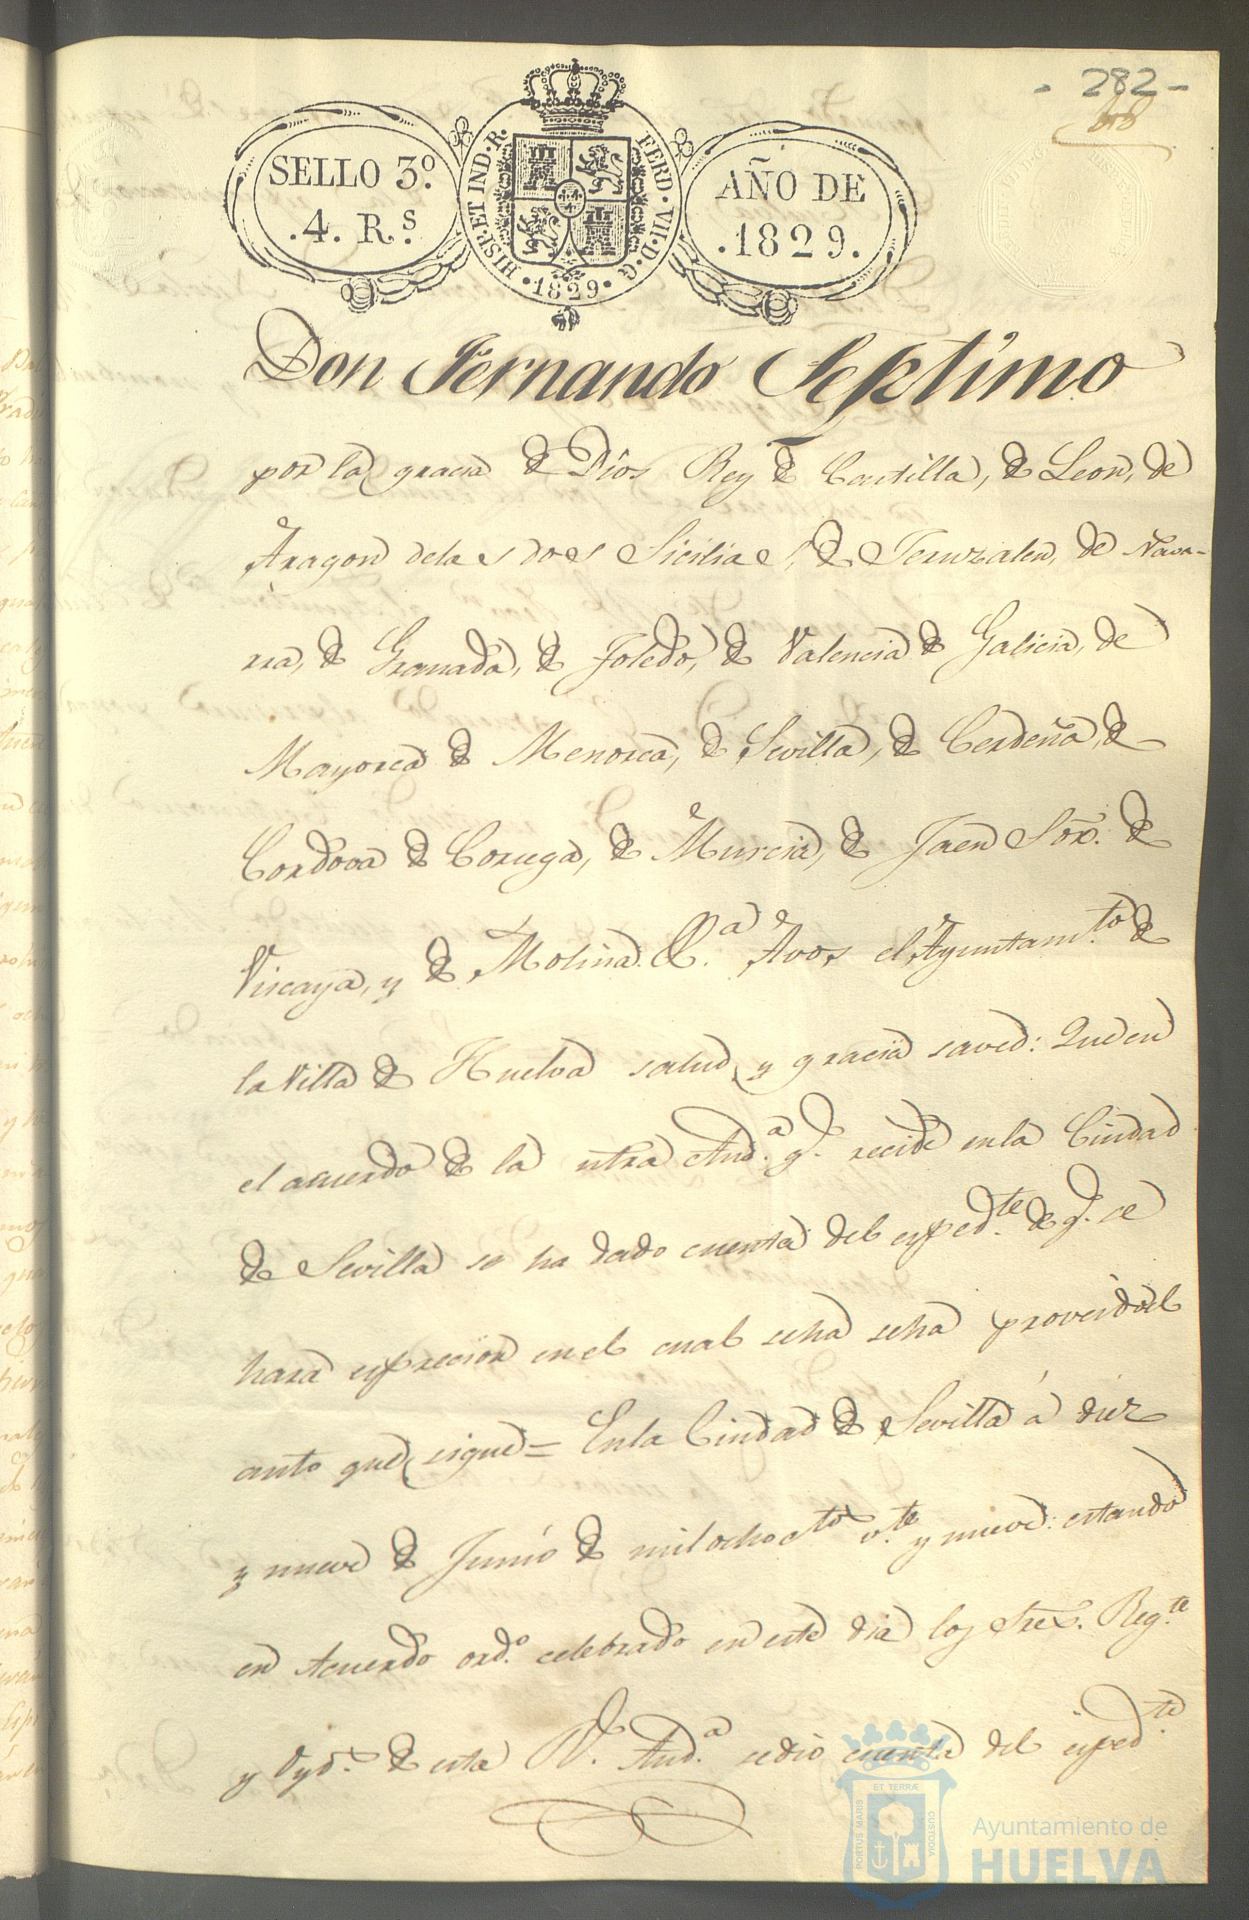 - 282 -
SELLO 3º.
.4. Rs.
HISP. ET IND. R.
FERD. VII. D. G.
· 1829 ·
AÑO DE
.1829.
Don Fernando Septimo
por la gracia de Dios Rey de Castilla, de Leon, de
Aragon delas dos Sicilias, de Jeruzalen, de Nava-
rra, de Granada, de Toledo, de Valencia de Galicia, de
Mayorca de Menorca, de Sevilla, de Cerdeña, de
Cordova de Corsega, de Murcia, de Jaen Sor. de
Viscaya, y de Molina &.a Avos el Ayuntam.to de
la Villa de Huelva salud y gracia saved: Que en
el acuerdo de la ntra Aud.a q. recide en la Ciudad
de Sevilla se ha dado cuenta del exped.te de q. se
hara exprecion en el cual seha seha proveido el
auto que sigue = En la Ciudad de Sevilla á diez
y nueve de Junio de mil ocho cto. v.te y nueve: estando
en Acuerdo ord.o celebrado en este dia los Sres. Reg.te
y Oyd.s de esta Rl. Aud.a sedio cuenta del exped.te
PORTUS MARIS
ET TERRÆ
CUSTODIA
Ayuntamiento de
HUELVA